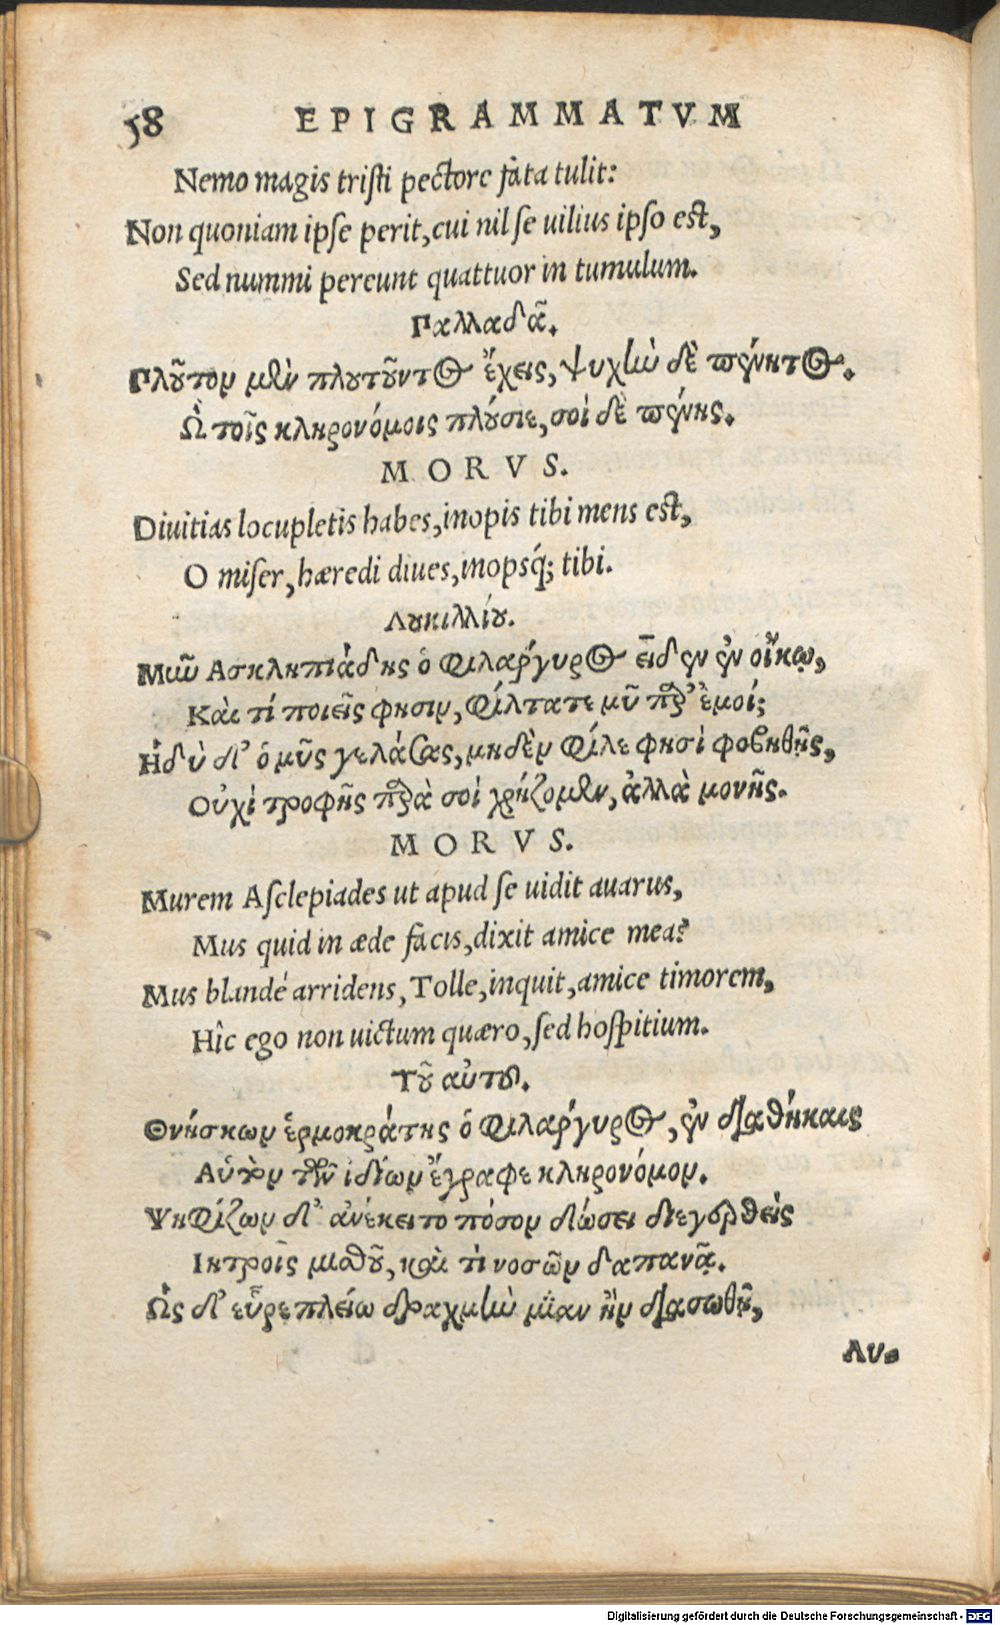 58 EPIGRAMMATVM
Nemo magis tristi pectore fata tulit:
Non quoniam ipse perit, cui nil se uilius ipso est,
Sed nummi pereunt quattuor in tumulum.
Παλλαδᾶ.
Πλοῦτον μὲν πλουτοῦντος ἔχεις, ψυχὴν δὲ πένητος.
Ὦ τοῖς κληρονόμοις πλούσιε, σοὶ δὲ πένης.
MORVS.
Diuitias locupletis habes, inopis tibi mens est,
O miser, hæredi diues, inopsq́; tibi.
Λουκιλλίου.
Μῦν Ασκληπιάδης ὁ φιλάργυρος εἶδεν ἐν οἴκῳ,
Καὶ τί ποιεῖς φησιν, φίλτατε μῦ παρ' ἐμοί;
Ἡδὺ δ' ὁ μῦς γελάσας, μηδὲν φίλε φησὶ φοβηθῇς,
Οὐχὶ τροφῆς παρὰ σοὶ χρῄζομεν, ἀλλὰ μονῆς.
MORVS.
Murem Asclepiades ut apud se uidit auarus,
Mus quid in æde facis, dixit amice mea?
Mus blandé arridens, Tolle, inquit, amice timorem,
Hîc ego non uictum quæro, sed hospitium.
Τοῦ αὐτοῦ.
Θνήσκων ἑρμοκράτης ὁ φιλάργυρος, ἐν διαθήκαις
Αὑτὸν τῶν ἰδίων ἔγραφε κληρονόμον.
Ψηφίζων δ' ἀνέκειτο πόσον δώσει διεγερθεὶς
Ιητροῖς μισθοῦ, καὶ τί νοσῶν δαπανᾷ.
Ὡς δ' εὗρε πλείω δραχμὴν μίαν ἢν διασωθῇ,
Λυ-
Digitalisierung gefördert durch die Deutsche Forschungsgemeinschaft - DFG